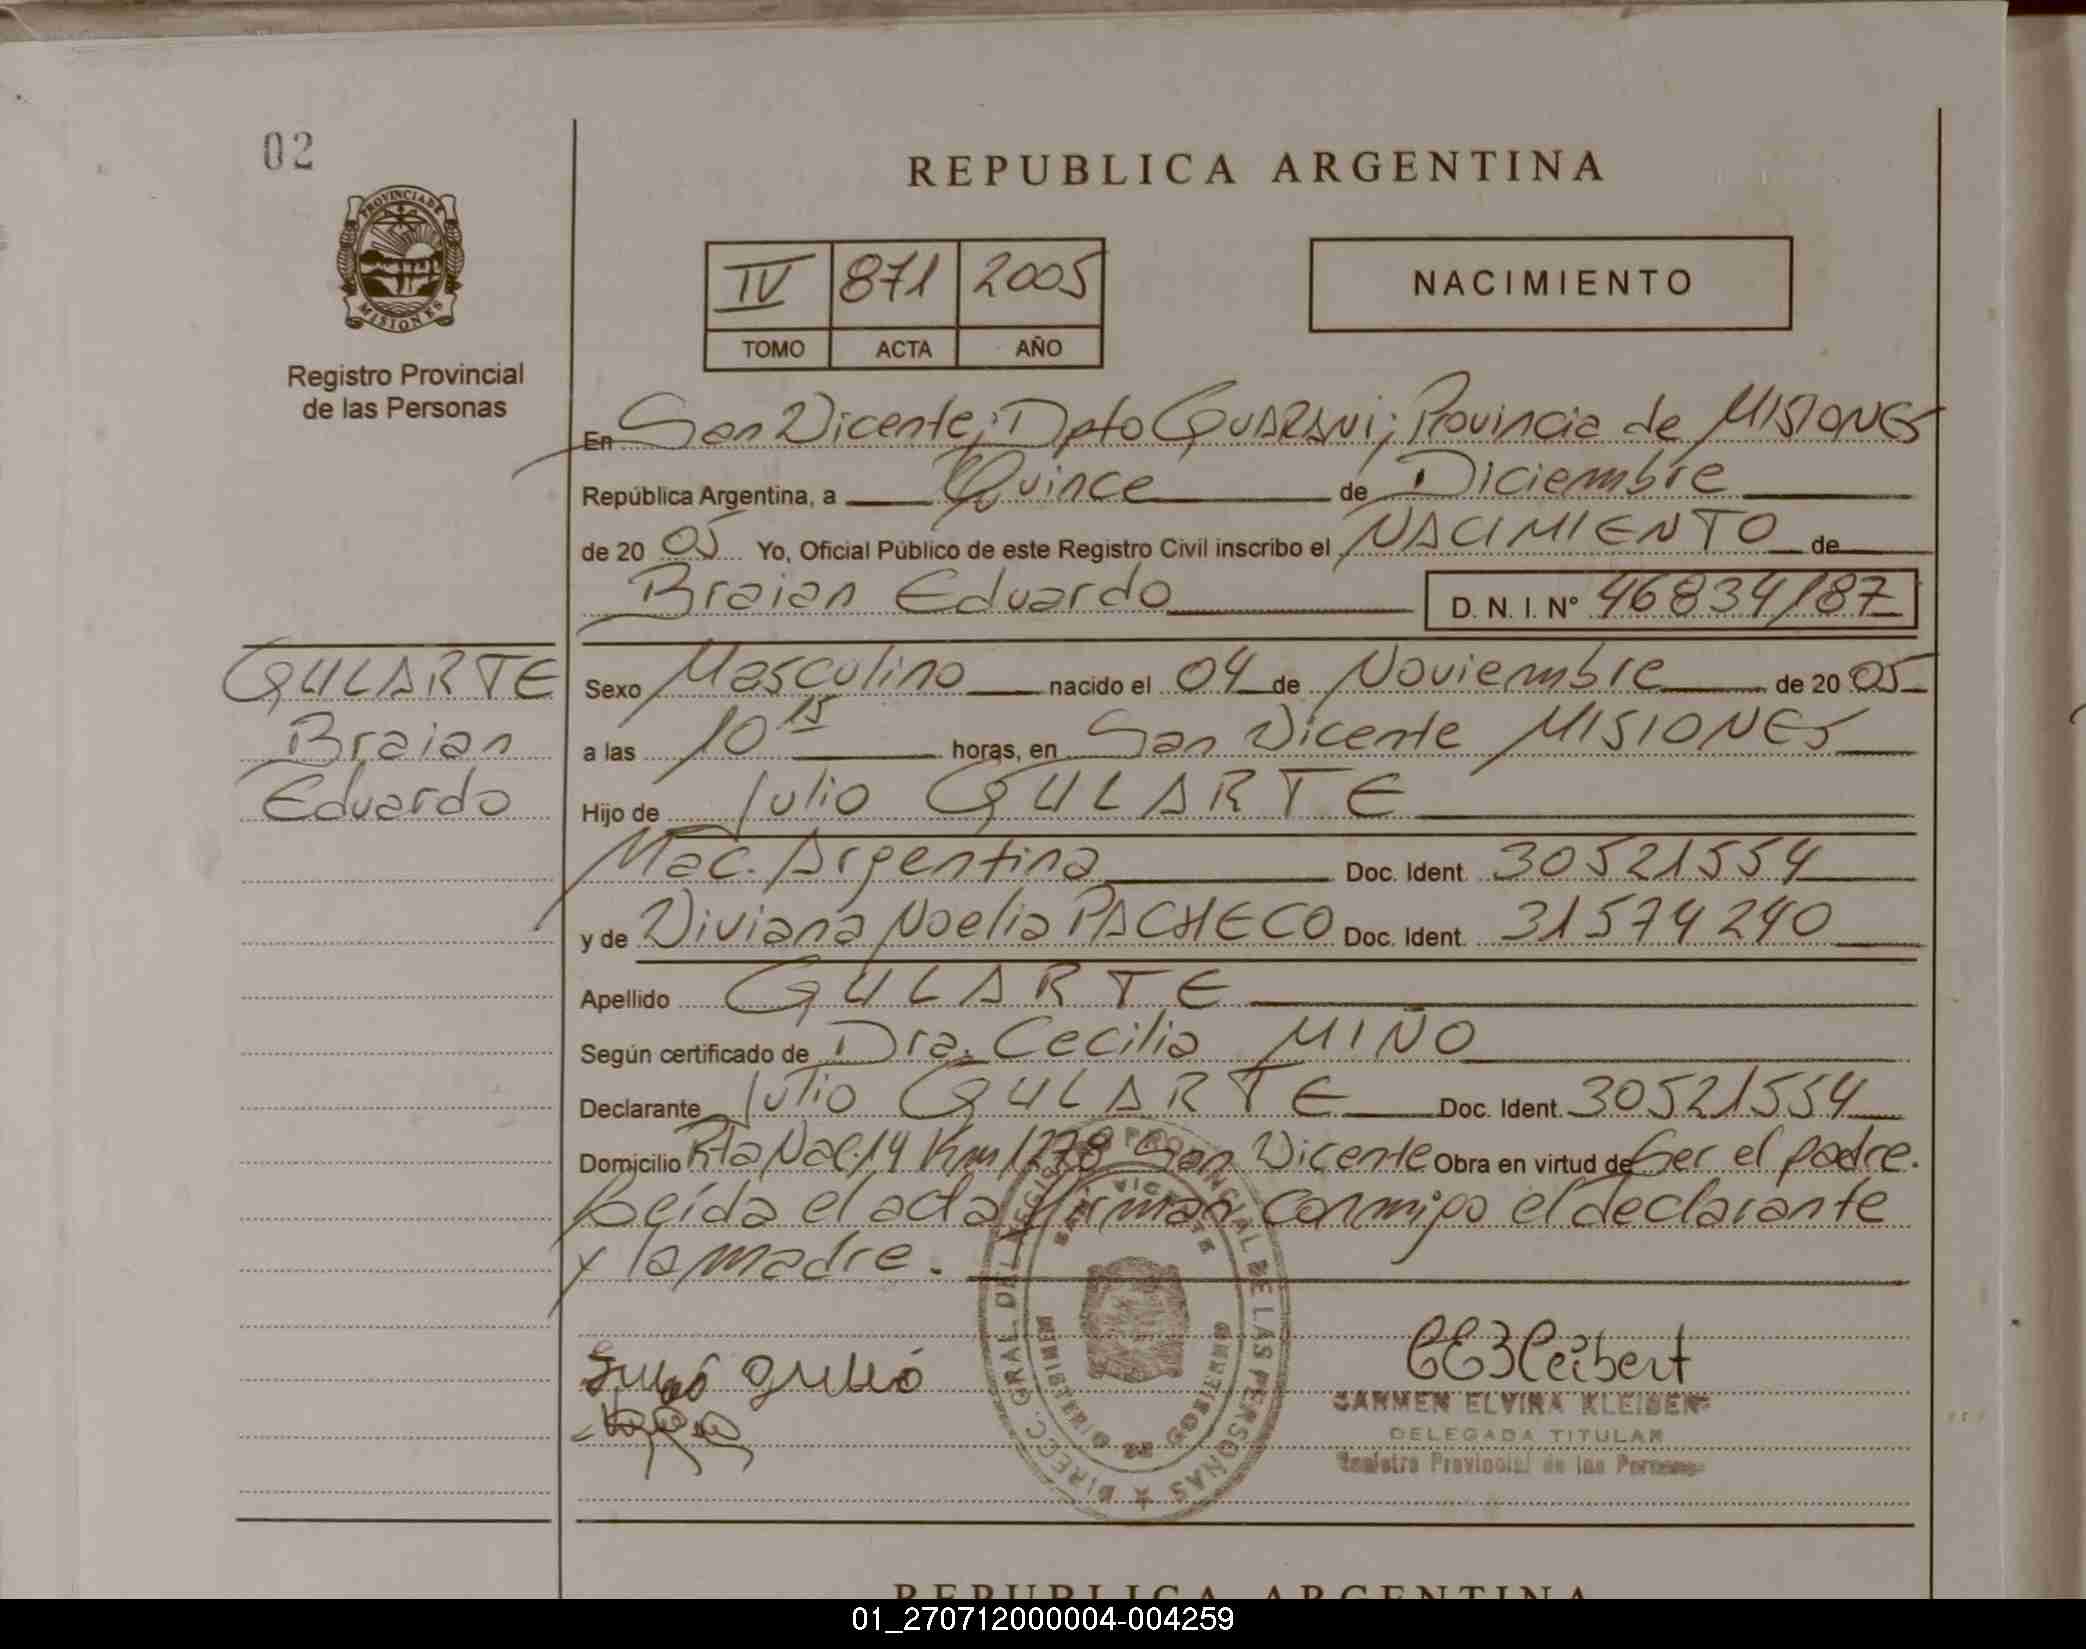 02
REPUBLICA ARGENTINA
PROVINCIA DE
MISIONES
Registro Provincial
de las Personas
IV 871 2005
TOMO ACTA AÑO
NACIMIENTO
En San Vicente; Dpto GUARANI; Provincia de MISIONES
República Argentina, a Quince de Diciembre
de 20 05 Yo, Oficial Público de este Registro Civil inscribo el NACIMIENTO de
Braian Eduardo D. N. I. Nº 46834187
GULARTE
Braian
Eduardo
Sexo Masculino nacido el 04 de Noviembre de 20 05
a las 10 15 horas, en San Vicente MISIONES
Hijo de Julio GULARTE
Nac. Argentina Doc. Ident. 30521554
y de Viviana Noelia PACHECO Doc. Ident. 31574240
Apellido GULARTE
Según certificado de Dra. Cecilia MIÑO
Declarante Julio GULARTE Doc. Ident. 30521554
Domicilio Rta Nac. 14 Km 1278 San Vicente Obra en virtud de Ser el padre.
Leída el acta firman conmigo el declarante
y la madre.
DIRECC. GRAL. DEL REGISTRO PROVINCIAL DE LAS PERSONAS
SAN VICENTE
MINISTERIO DE GOBIERNO
CEKleibert
CARMEN ELVIRA KLEIBERT
DELEGADA TITULAR
Registro Provincial de las Personas
REPUBLICA ARGENTINA
01_270712000004-004259